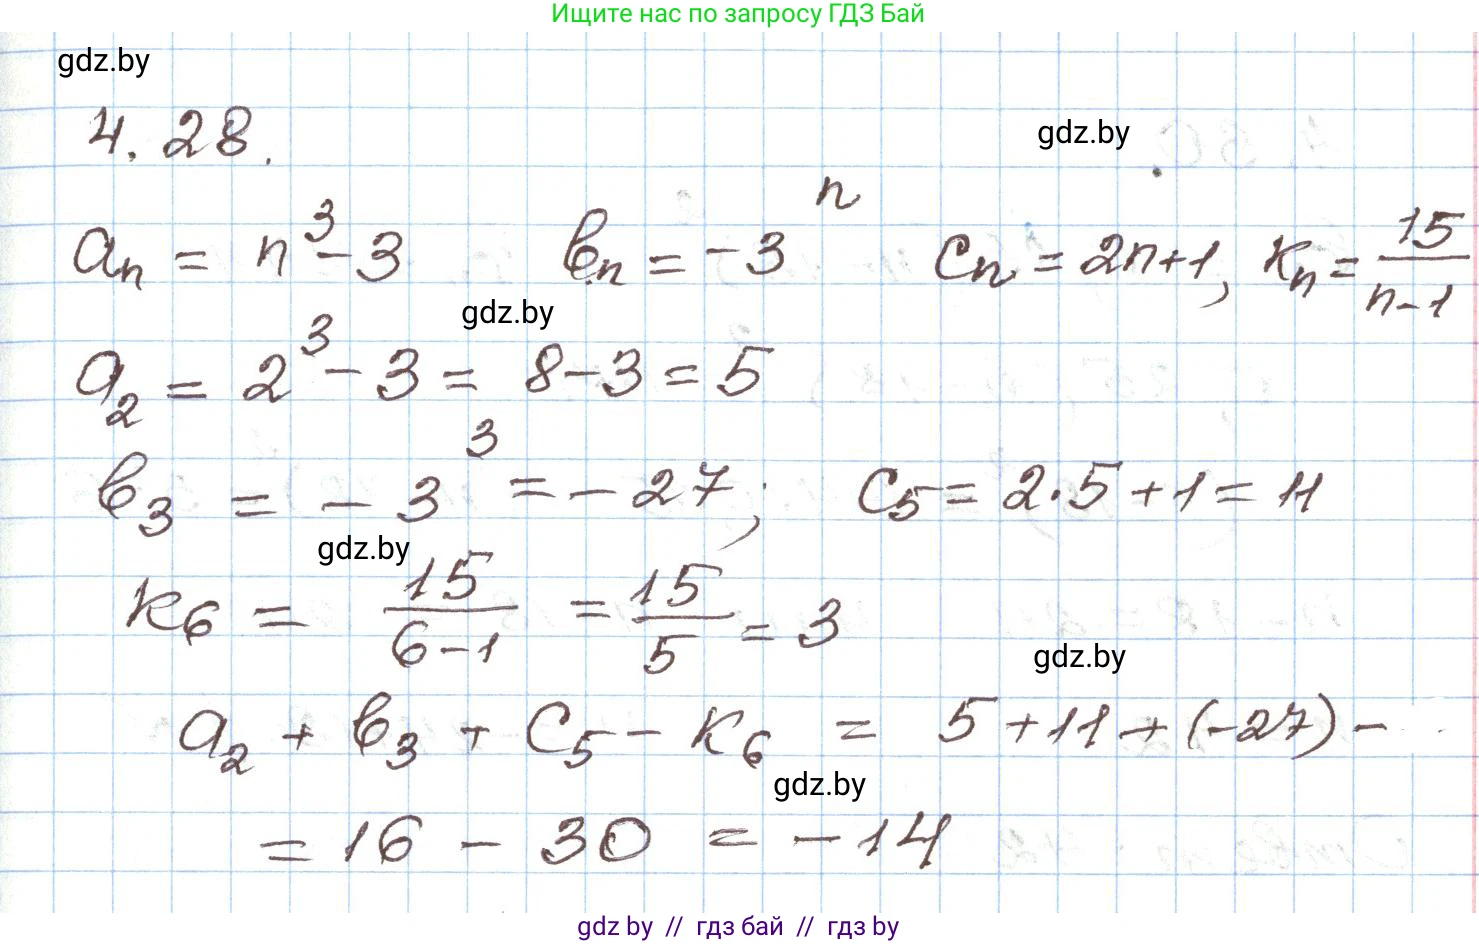 Ищите нас по запросу ГДЗ Бай
gdz.by
4.28.
gdz.by
aₙ = n³-3 вₙ = -3ⁿ cₙ = 2n+1, кₙ = 15/(n-1)
gdz.by
a₂ = 2³-3 = 8-3 = 5
в₃ = -3³ = -27; c₅ = 2·5+1 = 11
gdz.by
к₆ = 15/(6-1) = 15/5 = 3
gdz.by
a₂ + в₃ + c₅ - к₆ = 5+11+(-27)-
gdz.by
= 16 - 30 = -14
gdz.by // гдз бай // gdz.by